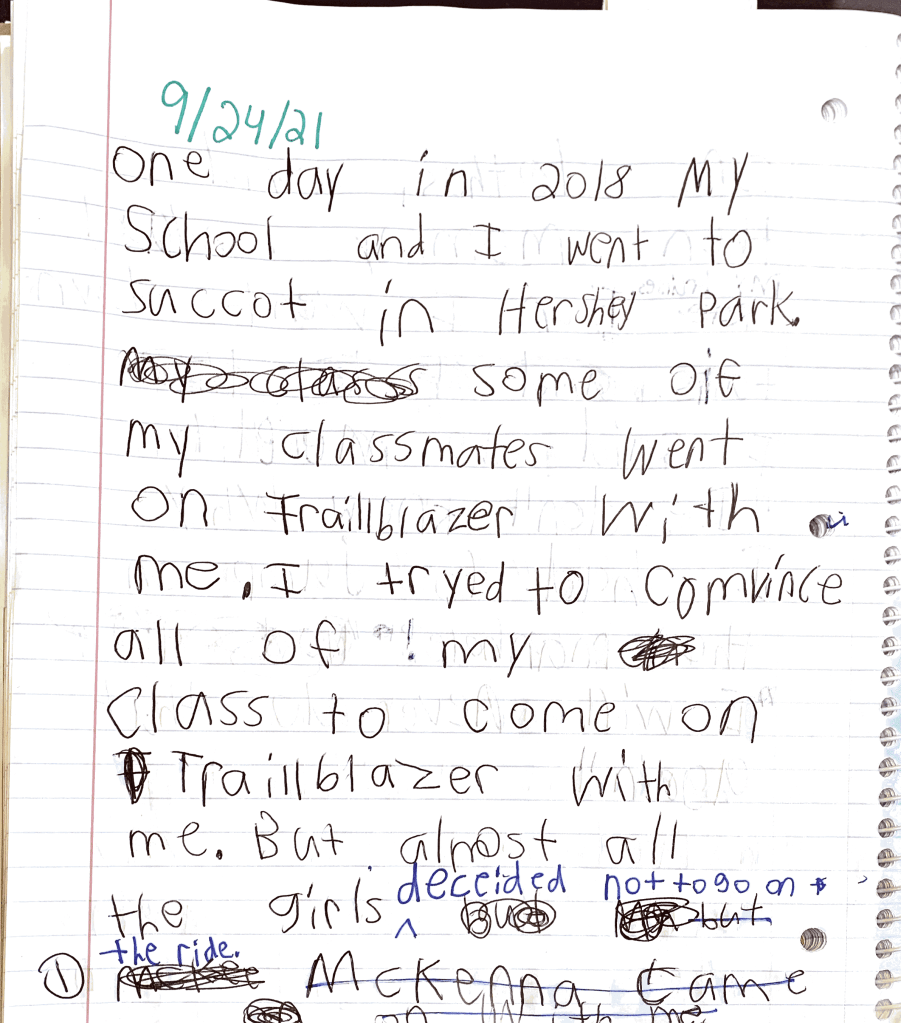 9/24/21
One day in 2018 My
School and I went to
succot in Hershey Park.
some oif
my classmates went
on Traillblazer with
me. I tryed to comvince
all of my
class to come on
Traillblazer with
me. But almost all
the girls deceided not to go on
the ride.
1 McKenna Came
on With me